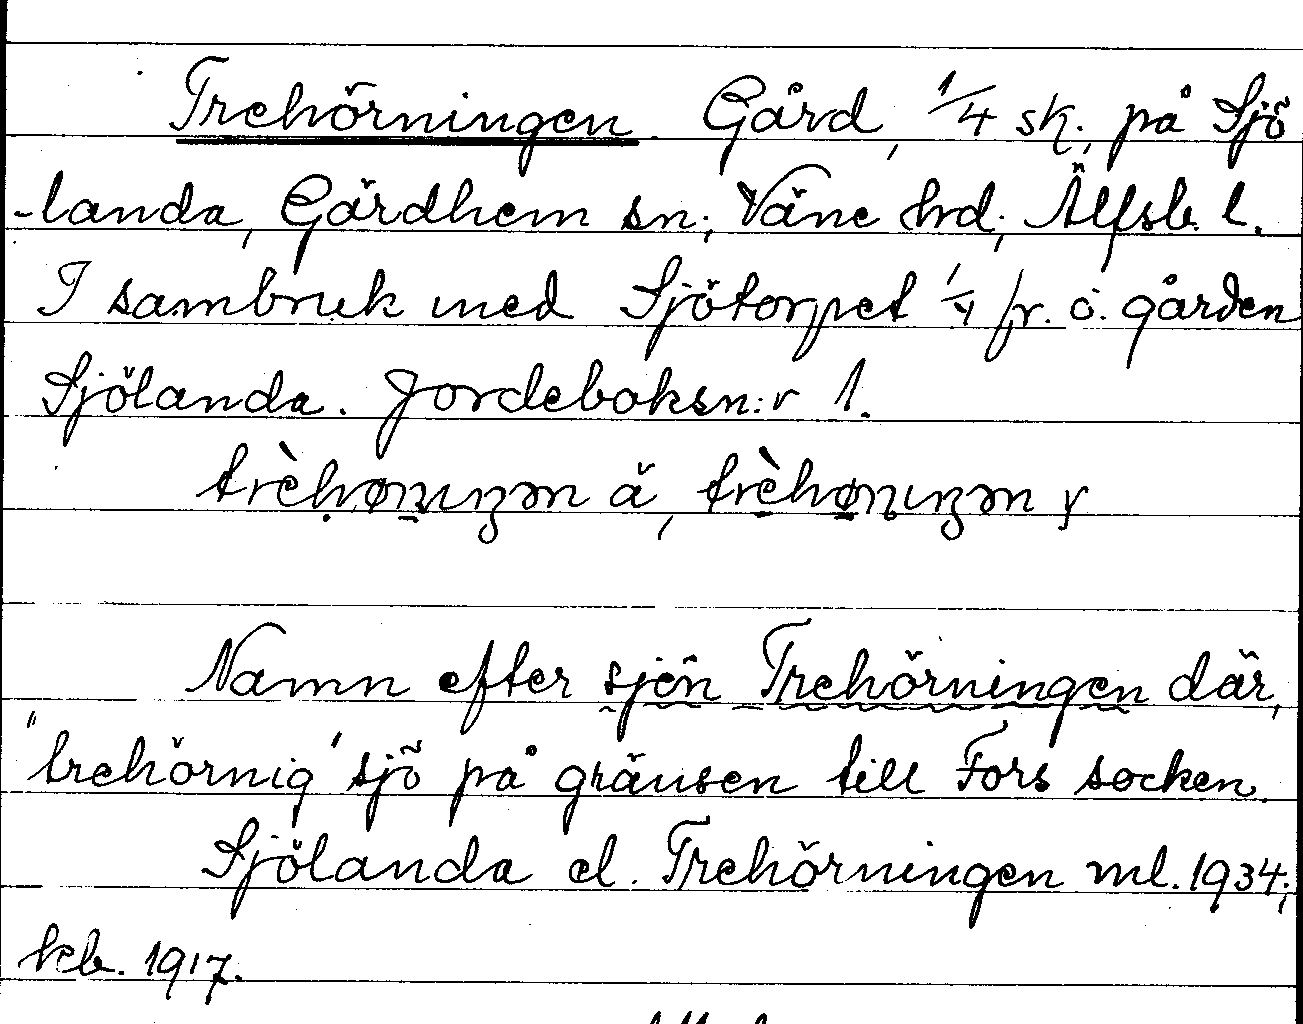 Trehörningen. Gård, 1/4 sk., på Sjö
-landa, Gärdhem sn; Väne hd; Älfsb. l.
I sambruk med Sjötorpet 1/4 fr. o. gården
Sjölanda. Jordeboksn:r 1.
trèhønıŋən ä, trèhønıŋən y
Namn efter sjön Trehörningen där,
"trehörnig" sjö på gränsen till Fors socken.
Sjölanda el. Trehörningen ml. 1934;
kcb. 1917.